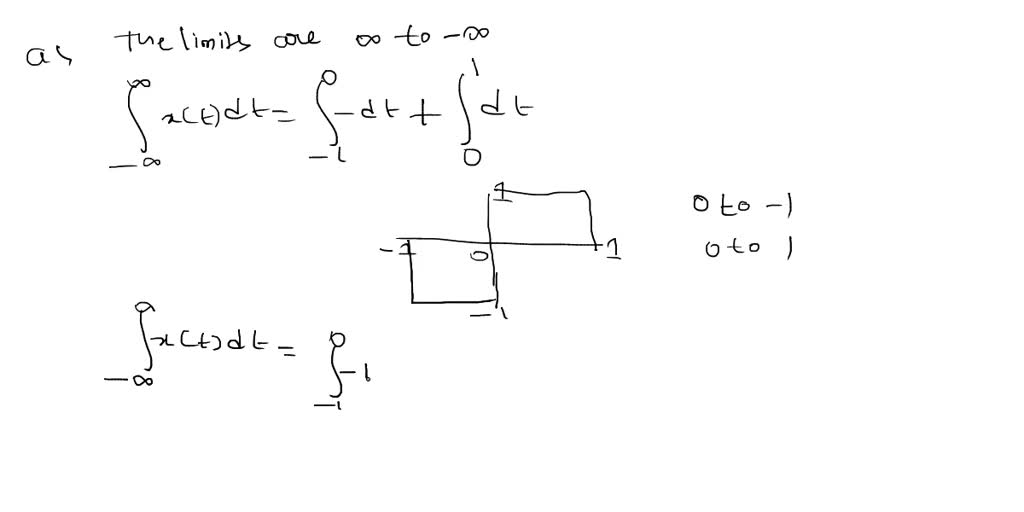 as the limits are ∞ to -∞
∫_{-∞}^{∞} x(t)dt = ∫_{-1}^{0} -dt + ∫_{0}^{1} dt
1
0 to -1
-1 0 1
0 to 1
-1
∫_{-∞}^{0} x(t)dt = ∫_{-1}^{0} -1